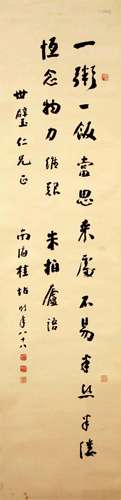 一粥一飯當思來處不易半絲半縷
恆念物力維艱 朱柏廬語
世璧仁兄正
南海桂坫時年八十八